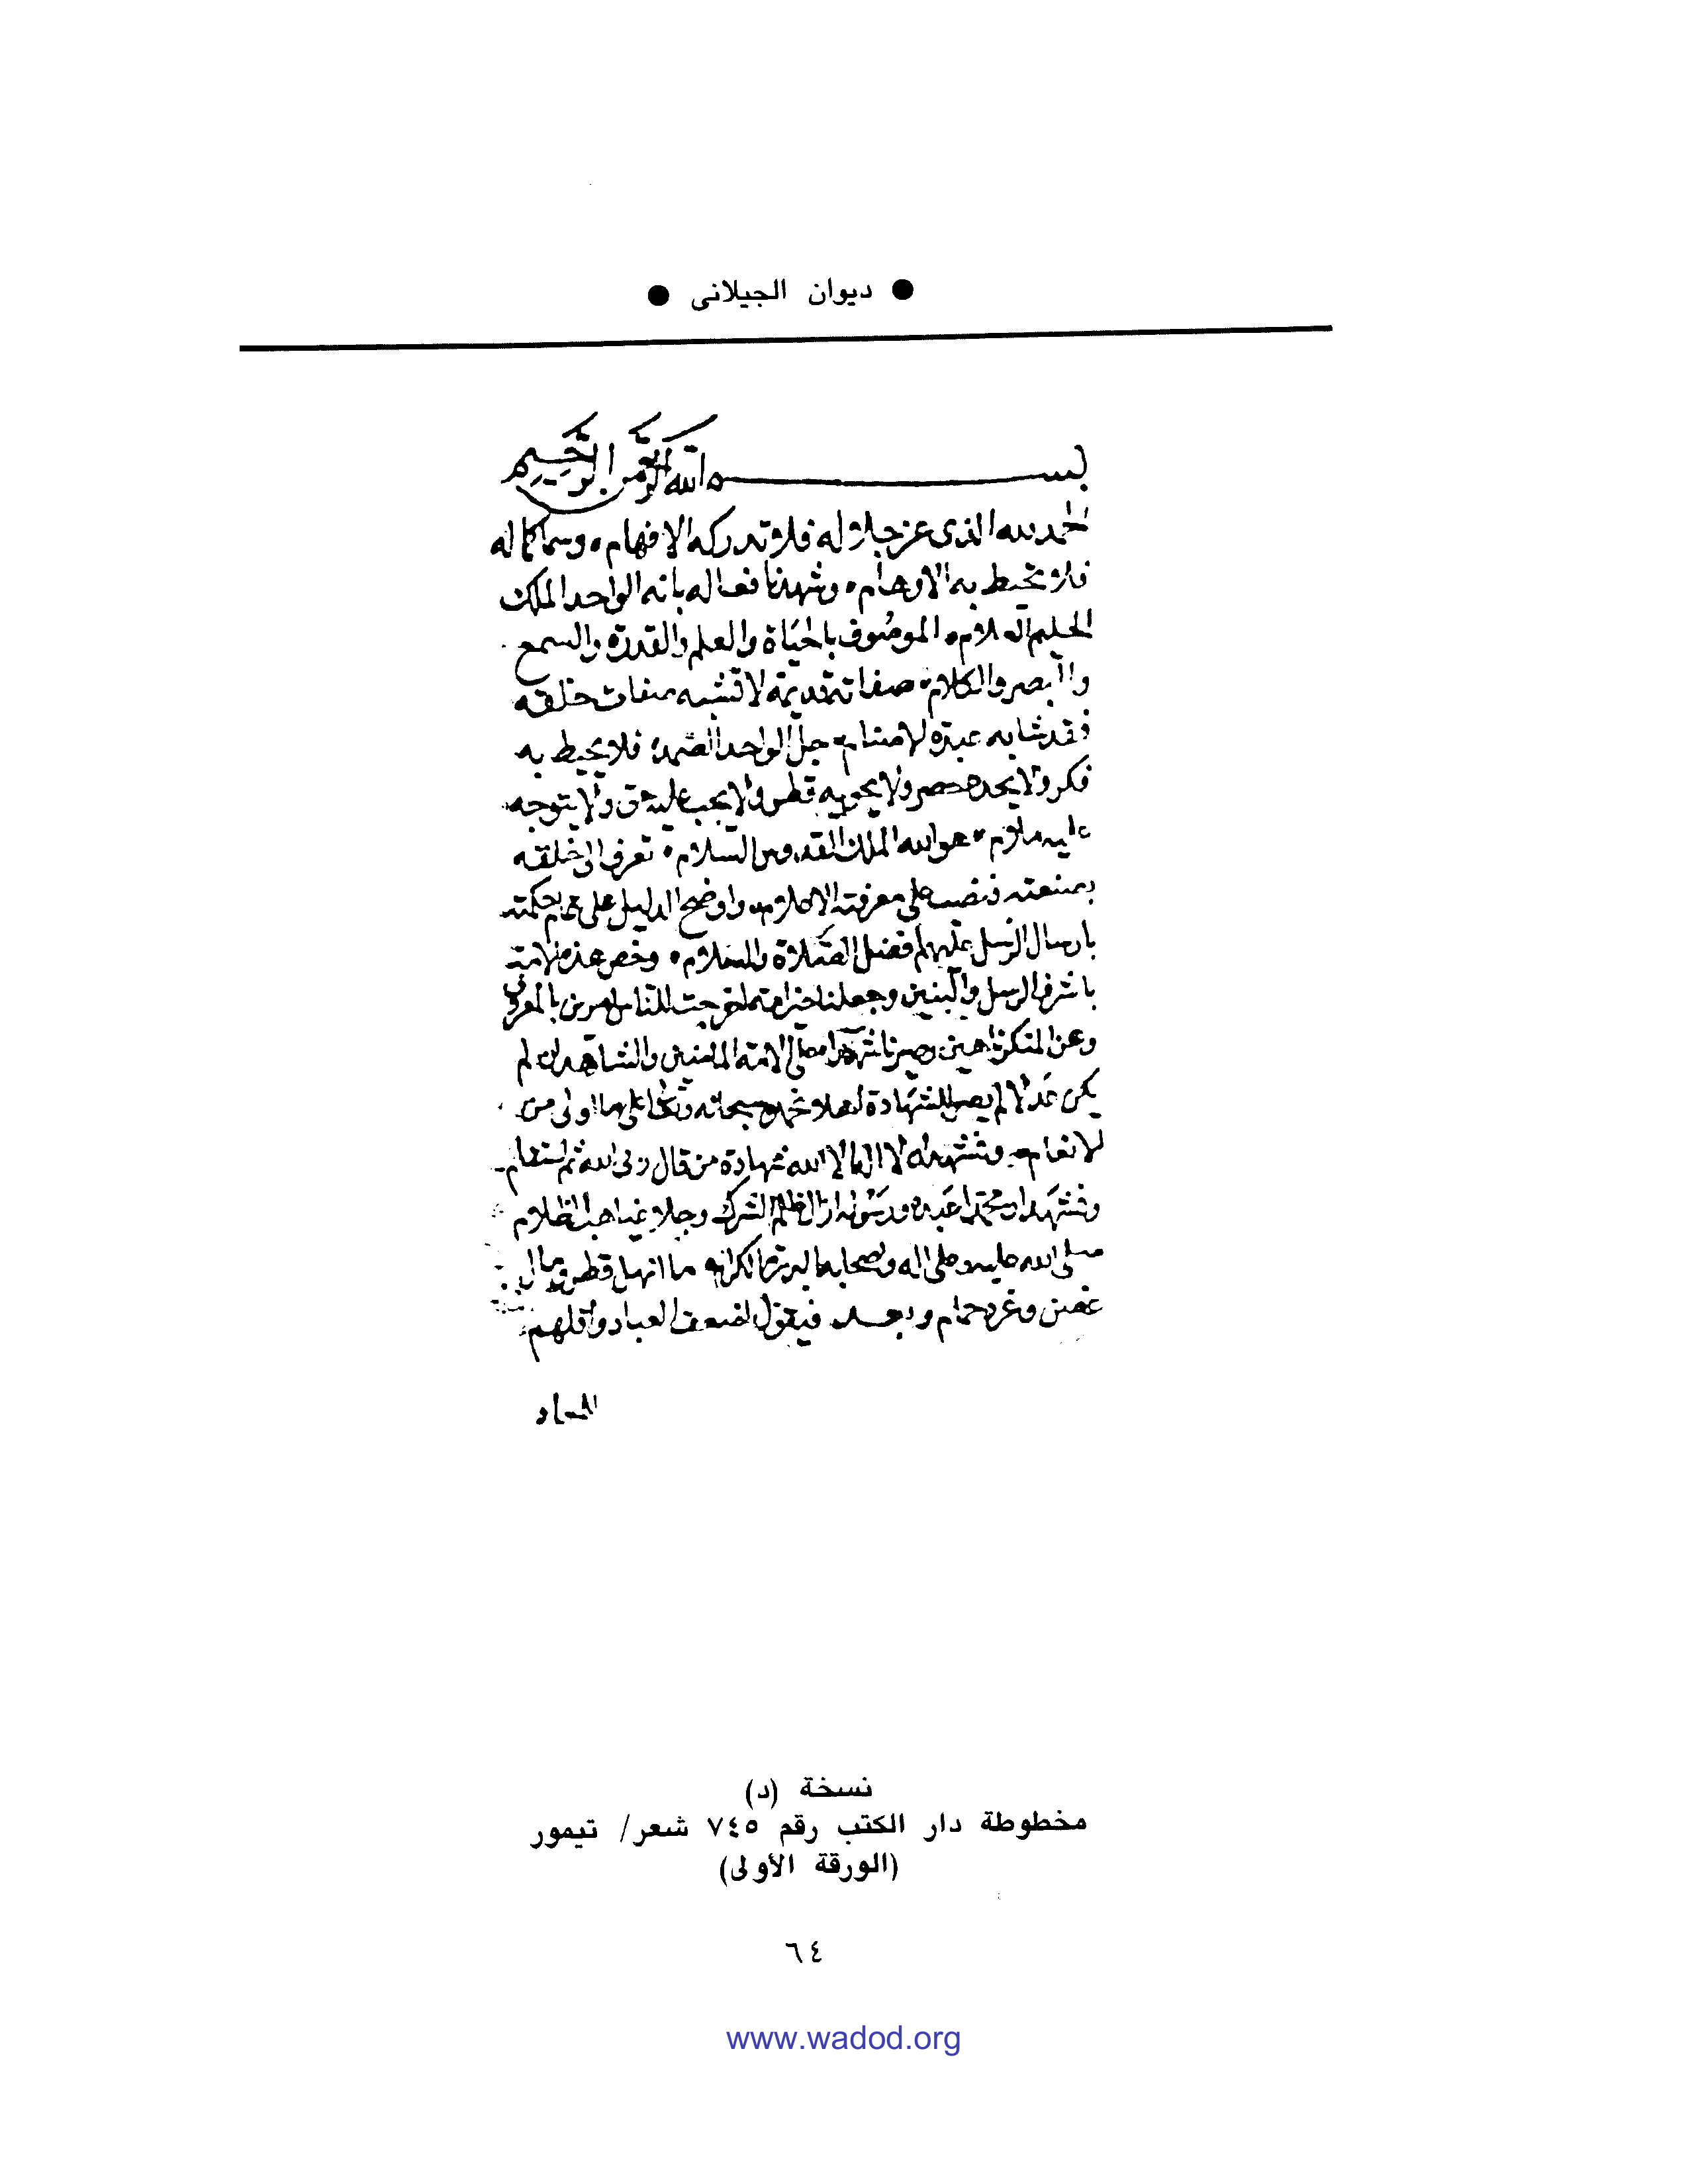 ● ديوان الجيلانى ●
بسم الله الرحمن الرحيم
الحمد لله الذى عز جلاله فلا تدركه الافهام وسما كماله
فلا تحيط به الاوهام وشهدت افعاله بانه الواحد الملك
الموصوف بالحياة والعلم والقدرة والسمع
والبصر والكلام صفاته قديمة لا تشبه صفات خلقه
فقد شابه جل الواحد الصمد فلا يحيط به
فكر ولا يحده حصر ولا يحويه قطر ولا يجب عليه حق ولا يتوجه
عليه ملام هو الله الملك القدوس السلام تعرف الى خلقه
بصنعته فنصب على معرفته الاعلام واوضح الدليل على حكمته
بارسال الرسل عليهم افضل الصلاة والسلام وخص هذه الامة
باشرف الرسل والنبيين وجعلنا خير امة اخرجت للناس امرين بالمعروف
وعن المنكر ناهين وصيرنا شهدا على الامة والشاهد ان لم
يكن عدلا لم يصلح للشهادة نحمده سبحانه على ما اولى من
الانعام ونشهد ان لا اله الا الله شهادة من قال ربى الله ثم استقام
ونشهد ان محمدا عبده ورسوله ازال ظلم الشرك وجلا غياهب الظلام
صلى الله عليه وعلى اله واصحابه البررة الكرام ما انهل قطر ومال
غصن وغرد حمام وبعد فيقول اضعف العباد واقلهم
نسخة (د)
مخطوطة دار الكتب رقم ٧٤٥ شعر/ تيمور
(الورقة الأولى)
٦٤
www.wadod.org